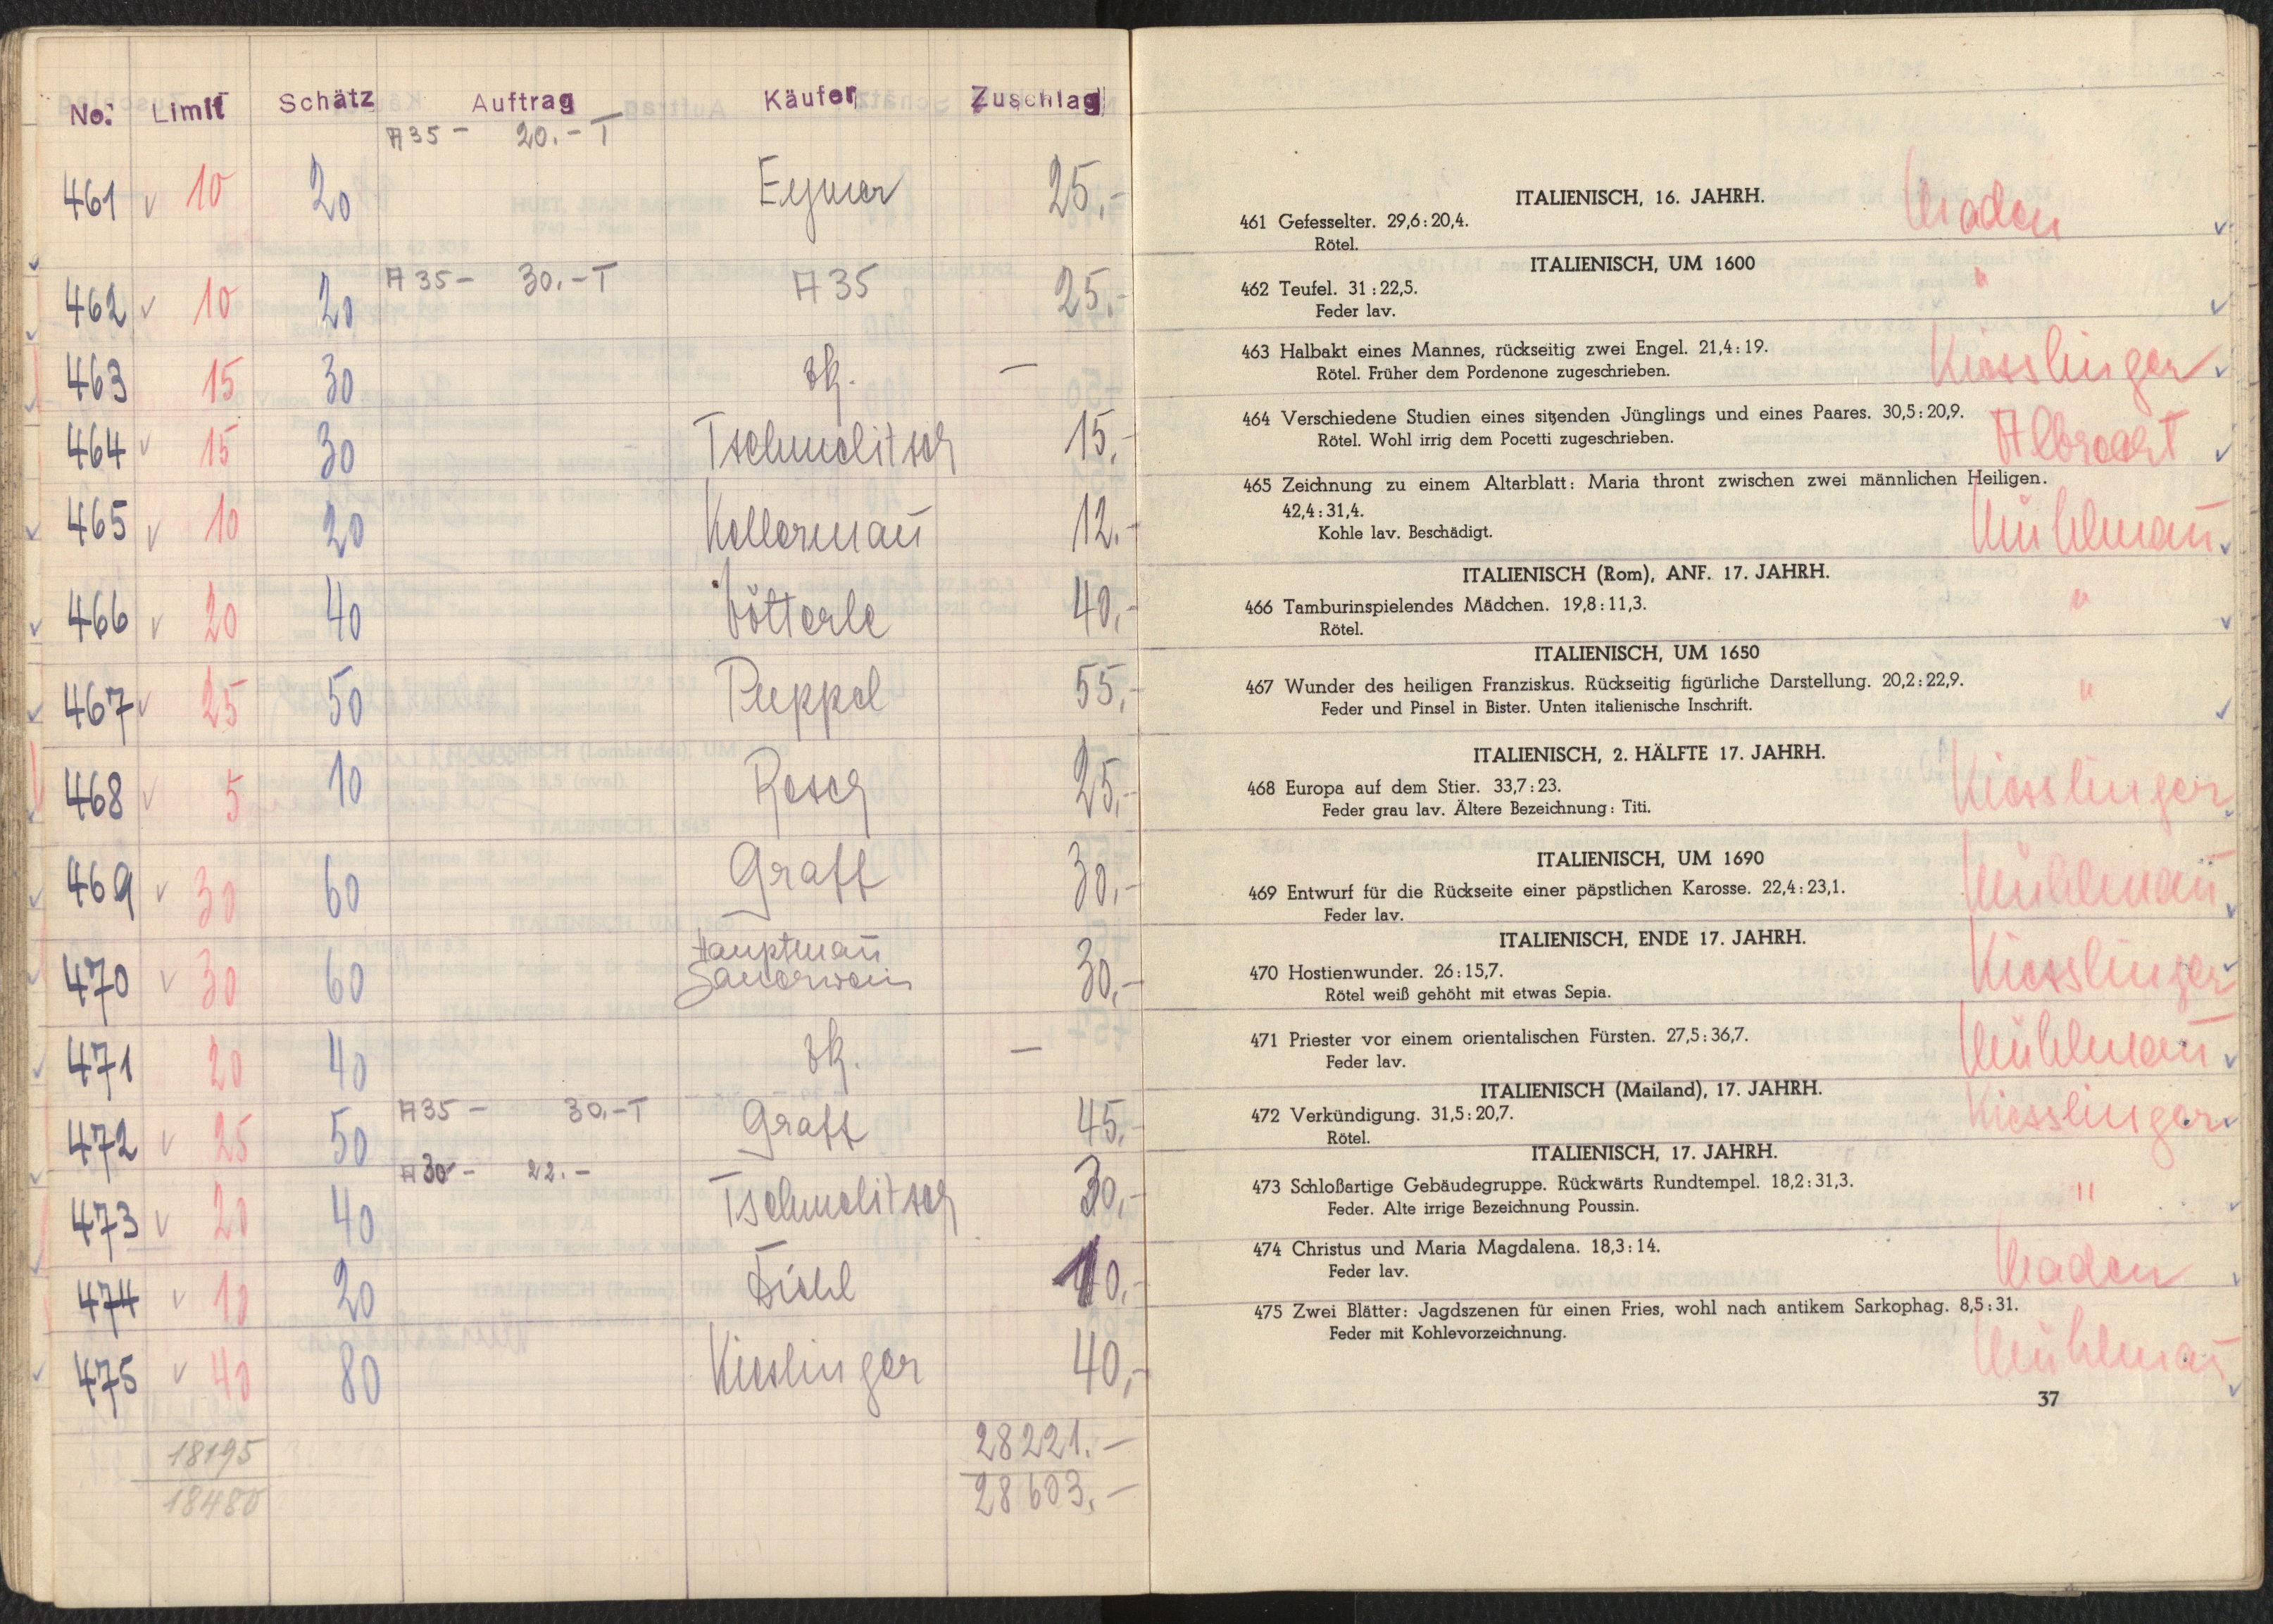 No. Limit Schätz Auftrag Käufer Zuschlag
A 35 – 20.– T
461 v 10 20 Eymer 25.–
A 35 – 30.– T
462 v 10 20 A 35 25.–
463 15 30 zk. —
464 v 15 30 Tschmelitsch 15.–
465 v 10 20 Kellermañ 12.–
466 v 20 40 Vötterle 40,–
467 v 25 50 Puppel 55,–
468 v 5 10 Resch 25,–
469 v 30 60 Graff 30,–
470 v 30 60 Hauptmañ
Sauerwein 30,–
471 20 40 zk. —
A 35 – 30.– T
472 v 25 50 Graff 45.–
A 30 – 22.–
473 v 20 40 Tschmelitsch 30,–
474 v 10 20 10,–
475 v 40 80 Kieslinger 40,–
18195 28221.–
18480 28603.–
ITALIENISCH, 16. JAHRH.
461 Gefesselter. 29,6 : 20,4.
Rötel.
ITALIENISCH, UM 1600
462 Teufel. 31 : 22,5. "
Feder lav.
463 Halbakt eines Mannes, rückseitig zwei Engel. 21,4 : 19. Kiesslinger
Rötel. Früher dem Pordenone zugeschrieben.
464 Verschiedene Studien eines sitzenden Jünglings und eines Paares. 30,5 : 20,9. Albrecht
Rötel. Wohl irrig dem Pocetti zugeschrieben.
465 Zeichnung zu einem Altarblatt: Maria thront zwischen zwei männlichen Heiligen.
42,4 : 31,4. Mühlmañ
Kohle lav. Beschädigt.
ITALIENISCH (Rom), ANF. 17. JAHRH.
466 Tamburinspielendes Mädchen. 19,8 : 11,3. "
Rötel.
ITALIENISCH, UM 1650
467 Wunder des heiligen Franziskus. Rückseitig figürliche Darstellung. 20,2 : 22,9. "
Feder und Pinsel in Bister. Unten italienische Inschrift.
ITALIENISCH, 2. HÄLFTE 17. JAHRH.
468 Europa auf dem Stier. 33,7 : 23. Kiesslinger
Feder grau lav. Ältere Bezeichnung: Titi.
ITALIENISCH, UM 1690
469 Entwurf für die Rückseite einer päpstlichen Karosse. 22,4 : 23,1. Mühlmañ
Feder lav.
ITALIENISCH, ENDE 17. JAHRH.
470 Hostienwunder. 26 : 15,7. Kiesslinger
Rötel weiß gehöht mit etwas Sepia.
471 Priester vor einem orientalischen Fürsten. 27,5 : 36,7. Mühlmañ
Feder lav.
ITALIENISCH (Mailand), 17. JAHRH.
472 Verkündigung. 31,5 : 20,7. Kiesslinger
Rötel.
ITALIENISCH, 17. JAHRH.
473 Schloßartige Gebäudegruppe. Rückwärts Rundtempel. 18,2 : 31,3. "
Feder. Alte irrige Bezeichnung Poussin.
474 Christus und Maria Magdalena. 18,3 : 14.
Feder lav.
475 Zwei Blätter: Jagdszenen für einen Fries, wohl nach antikem Sarkophag. 8,5 : 31.
Feder mit Kohlevorzeichnung. Mühlmañ
37